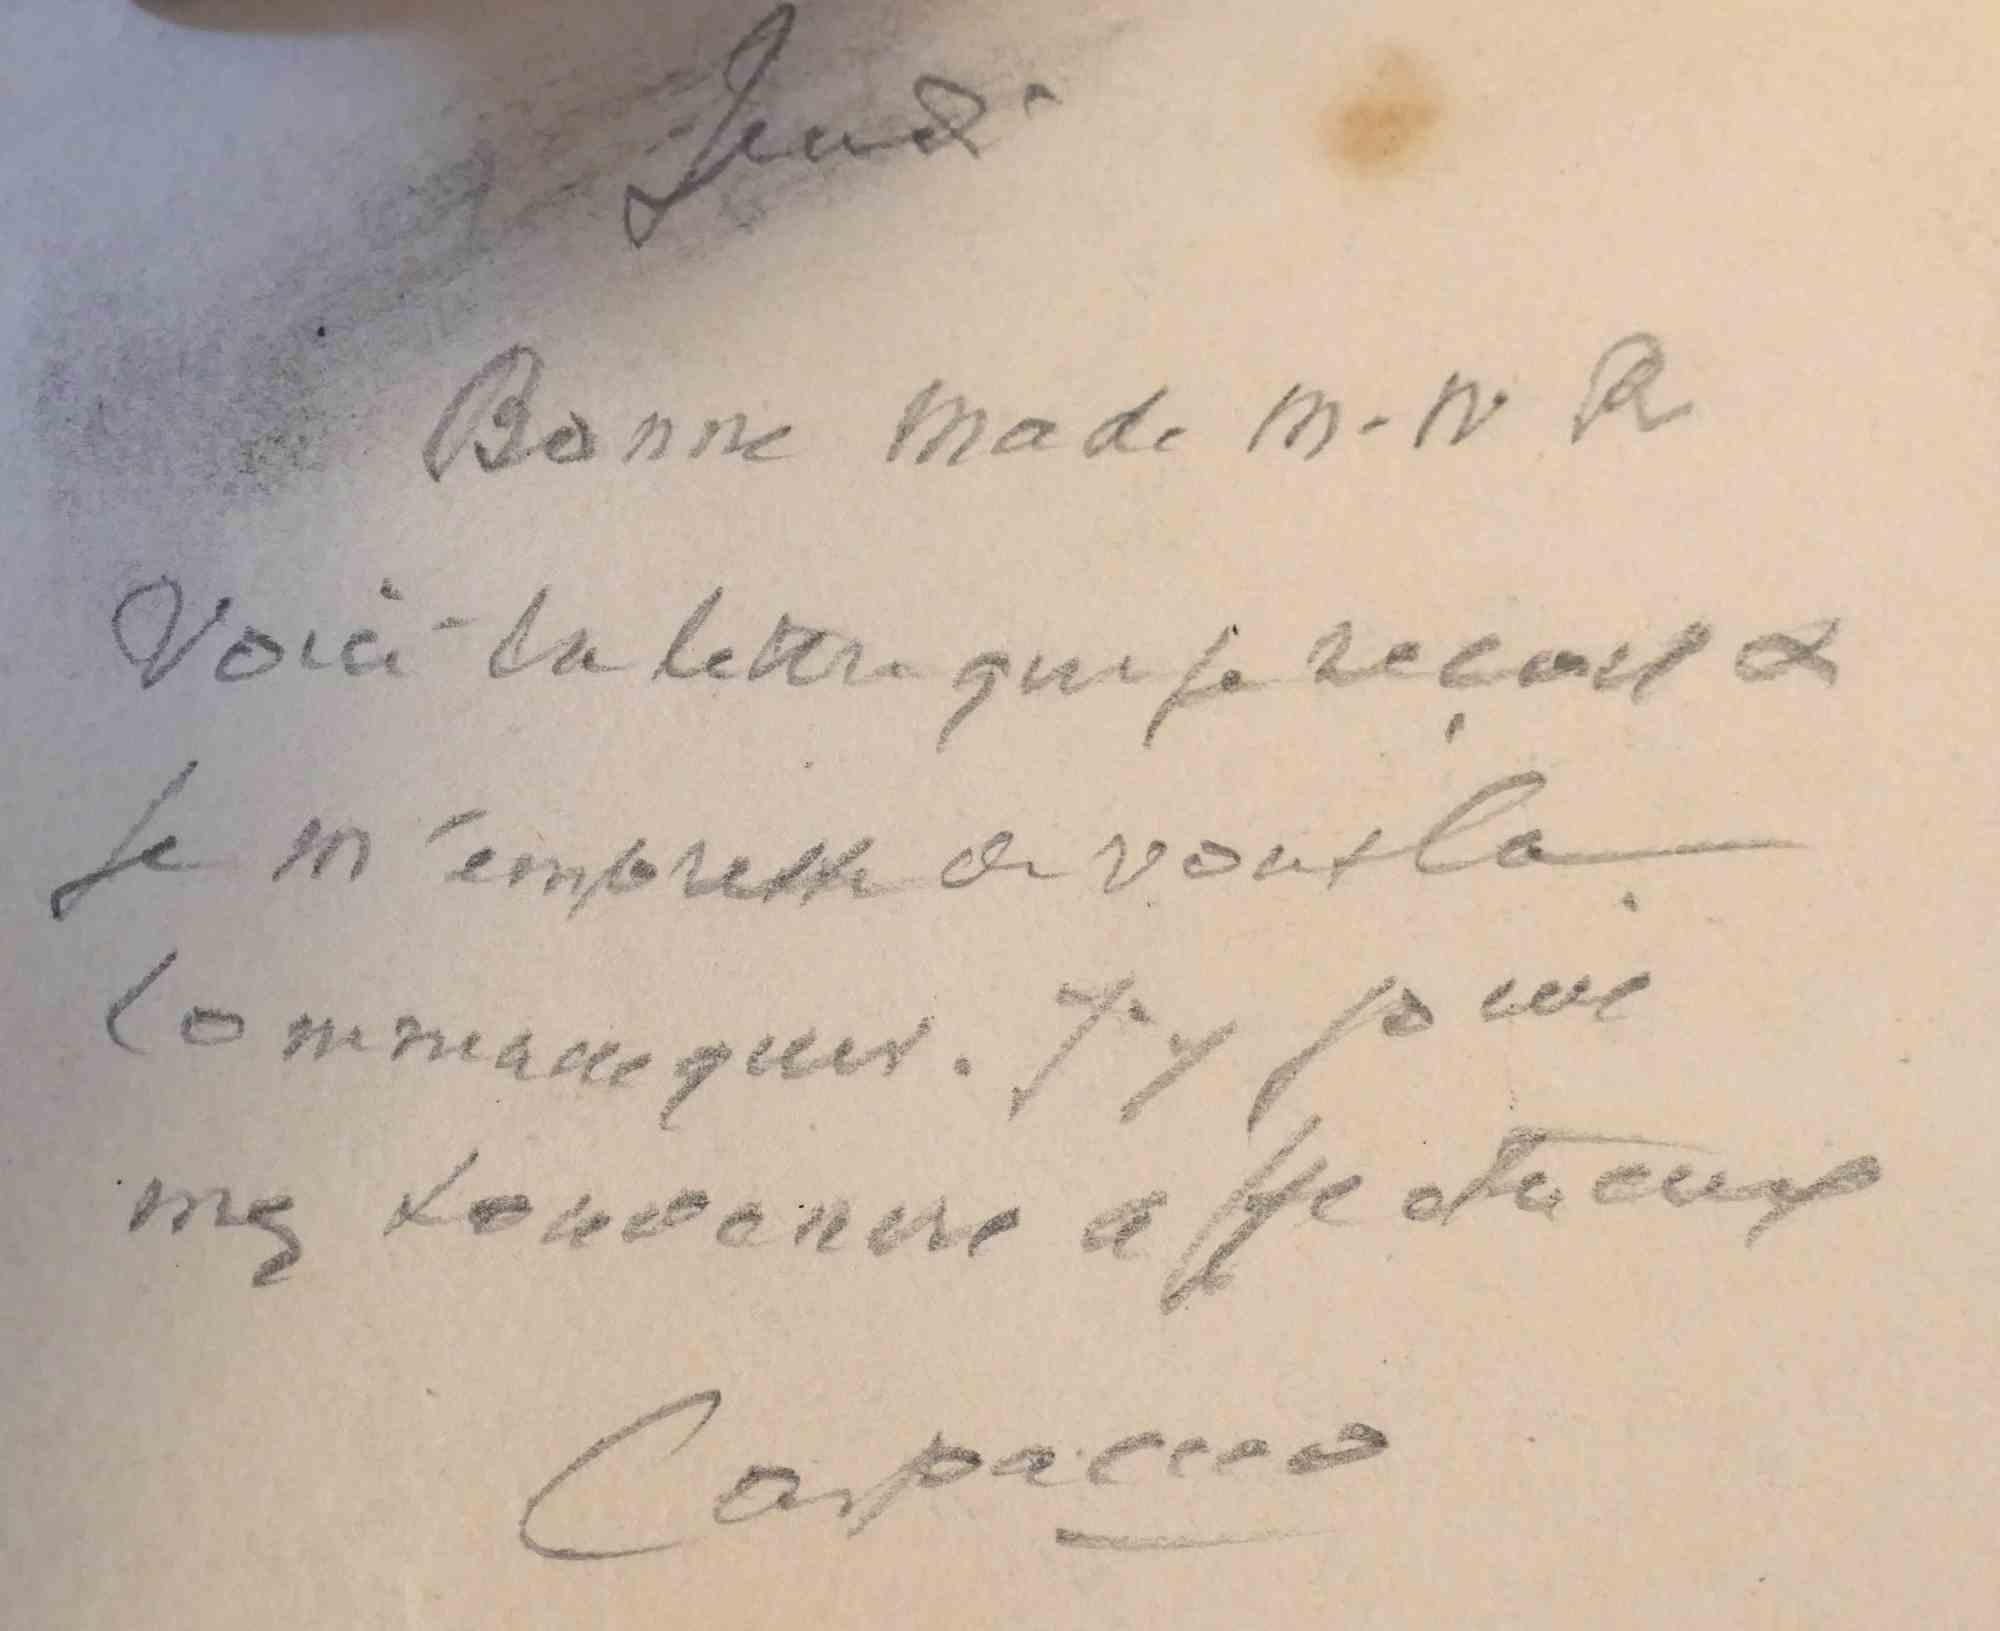 Jeudi
Bonne Made M-N R
Voici la lettre que je reçois &
je m'empresse de vous la
communiquer. J'y joins
mes souvenirs affectueux
Carpaccio